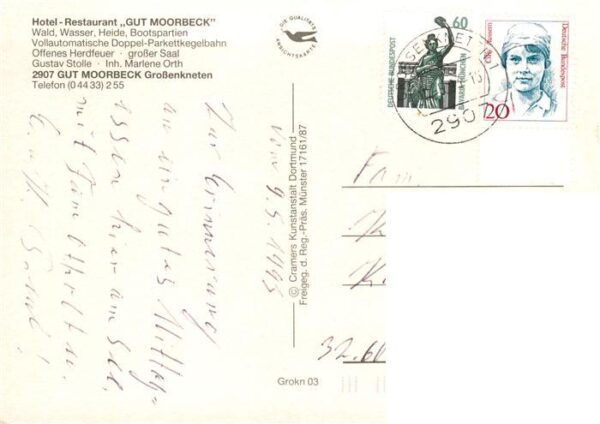 Hotel - Restaurant „GUT MOORBECK“
Wald, Wasser, Heide, Bootspartien
Vollautomatische Doppel-Parkettkegelbahn
Offenes Herdfeuer · großer Saal
Gustav Stolle · Inh. Marlene Orth
2907 GUT MOORBECK Großenkneten
Telefon (0 44 33) 2 55
Zur Erinnerung
vom 9.5.1995
an ein gutes Mittag-
essen hier am See
mit Fam.
DIE QUALITÄTS
ANSICHTSKARTE
© Cramers Kunstanstalt Dortmund
Freigeg. d. Reg.-Präs. Münster 17161/87
Grokn 03
60
DEUTSCHE BUNDESPOST
2907
20
Deutsche Bundespost
Fam.